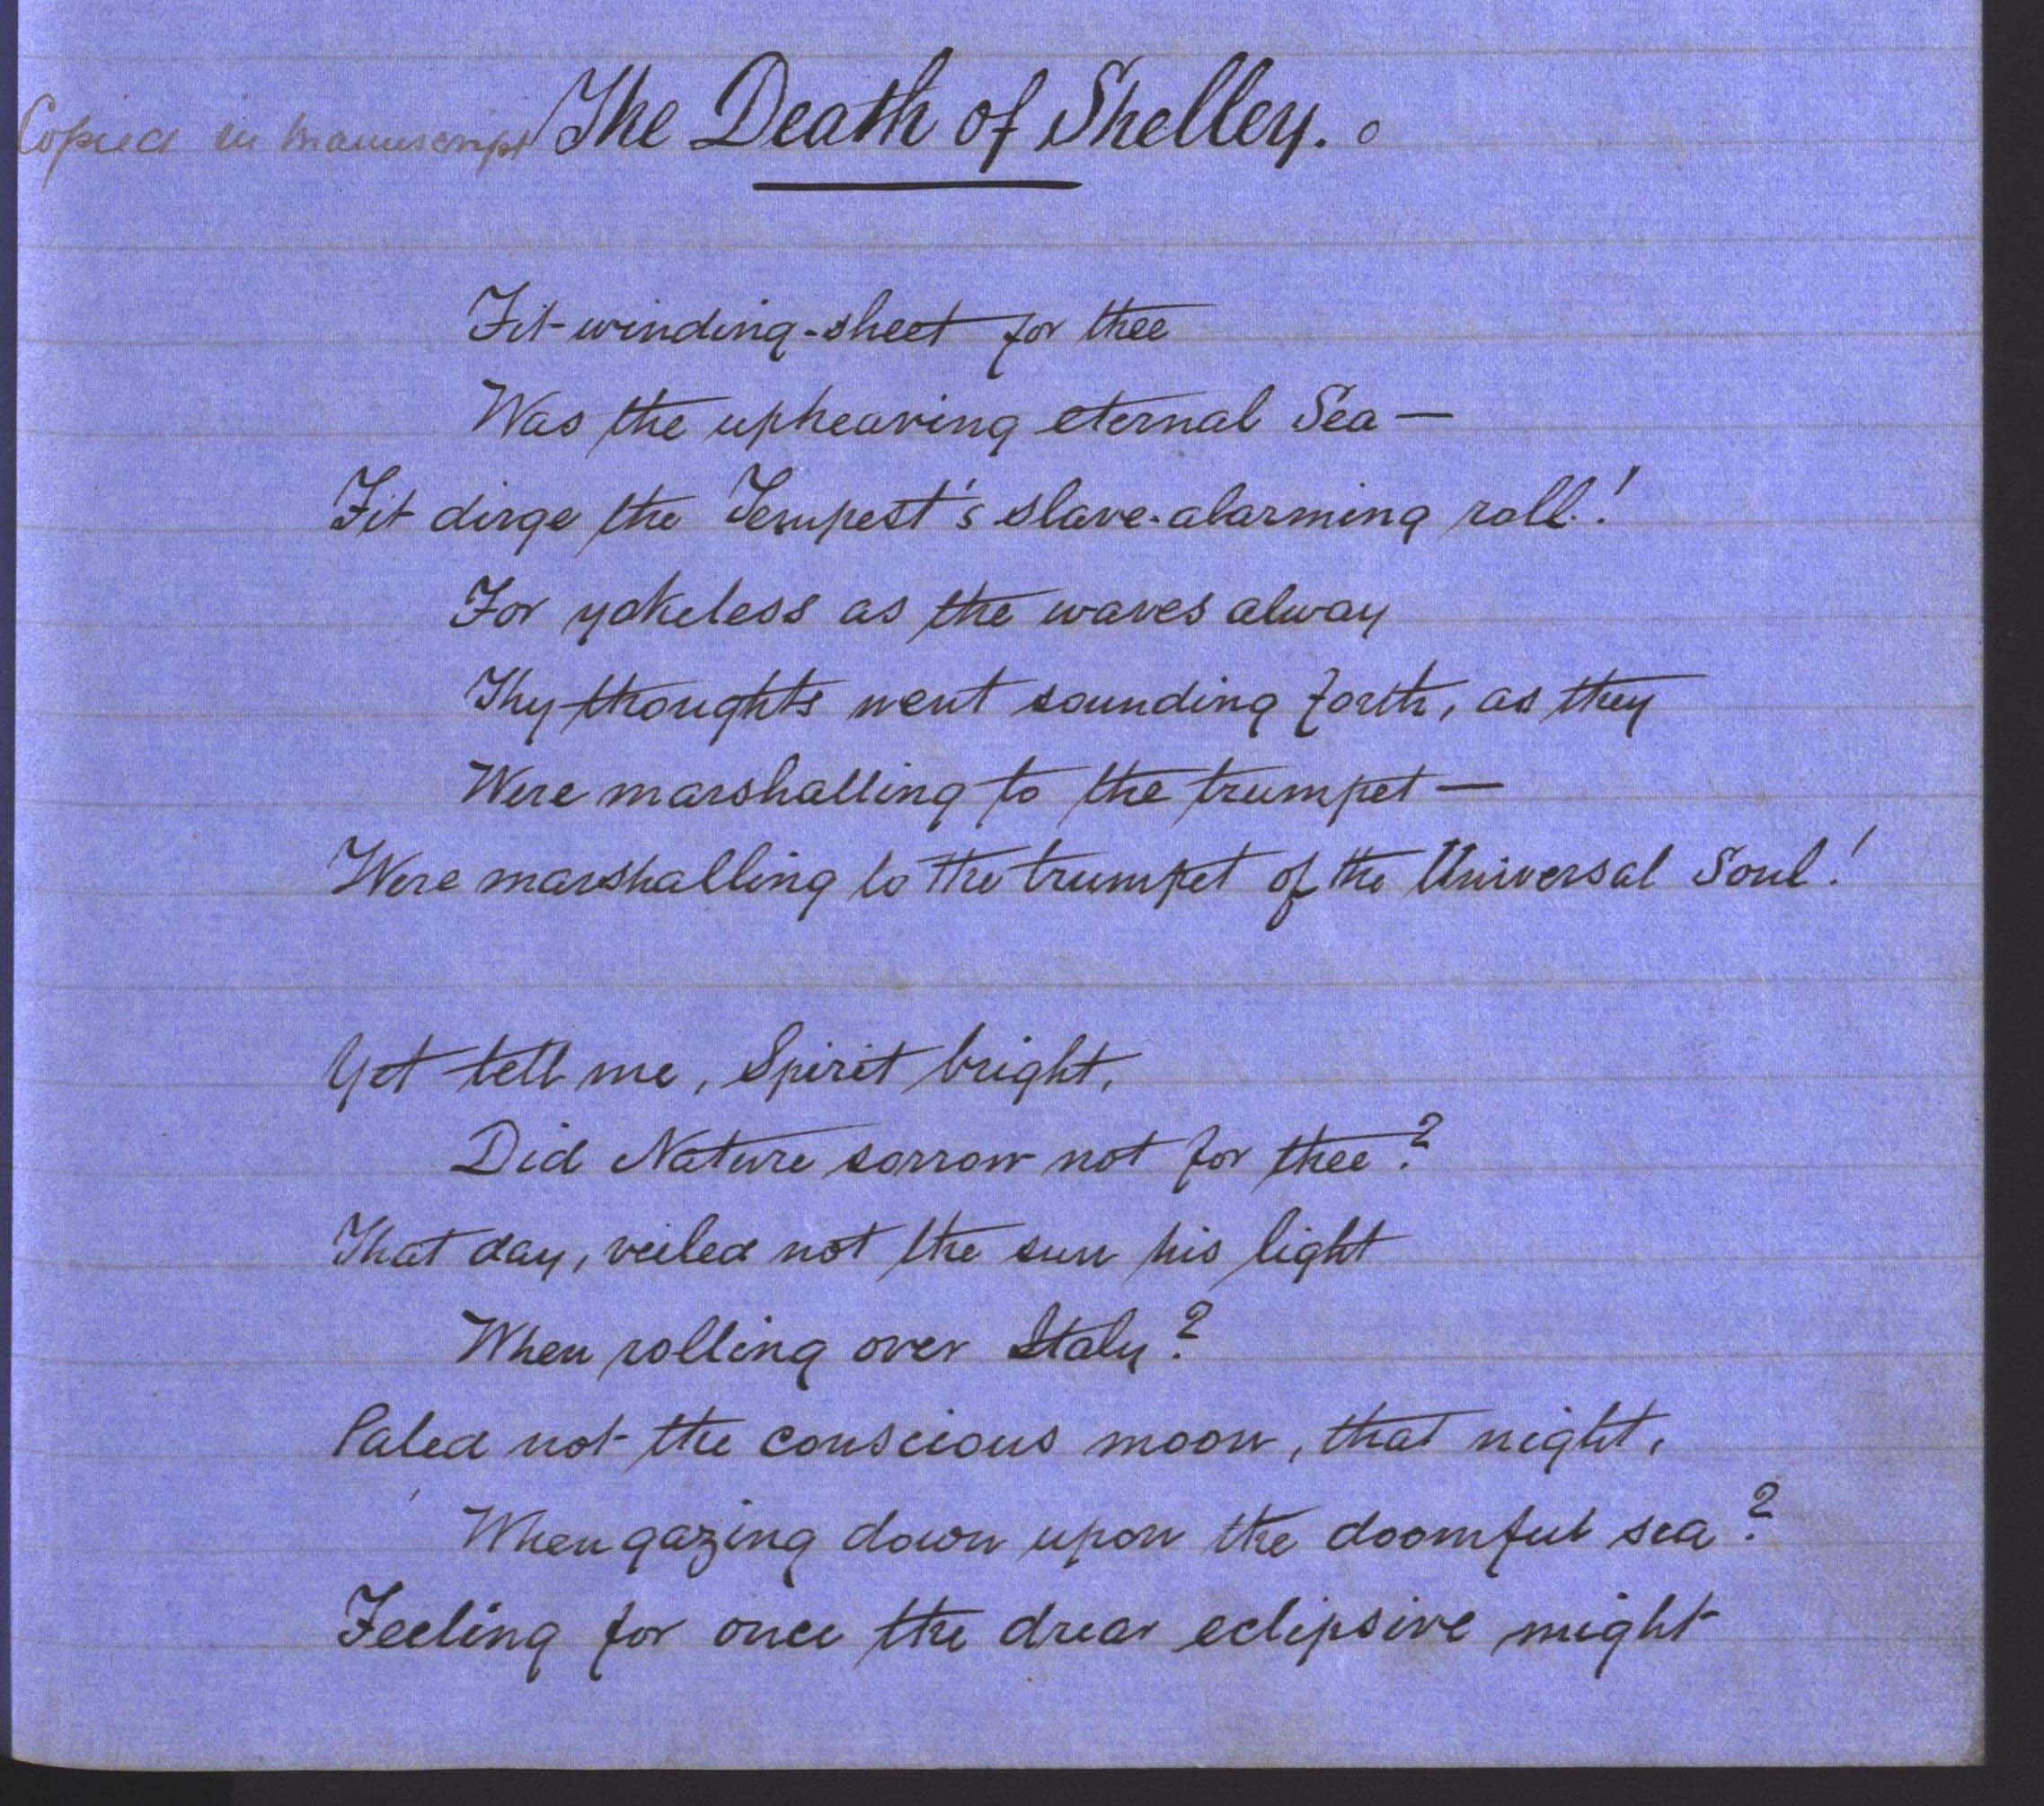 Copied in manuscript The Death of Shelley.
Fit winding-sheet for thee
Was the upheaving eternal Sea —
Fit dirge the Tempest's slave-alarming roll!
For yokeless as the waves alway
Thy thoughts went sounding forth, as they
Were marshalling to the trumpet —
Were marshalling to the trumpet of the Universal Soul!
Yet tell me, Spirit bright,
Did Nature sorrow not for thee?
That day, veiled not the sun his light
When rolling over Italy?
Paled not the conscious moon, that night,
When gazing down upon the doomful sea?
Feeling for once the drear eclipsive might